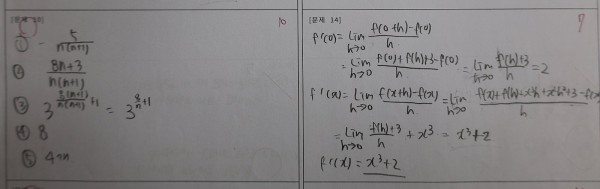 [문제 10]
10
① - 5/n(n+1)
② 8n+3/n(n+1)
③ 3^(8(n+1)/n(n+1) +1) = 3^(8/n +1)
④ 8
⑤
[문제 14]
f'(0) = lim h→0 f(0+h)-f(0)/h
= lim h→0 f(0)+f(h)+3-f(0)/h = lim h→0 f(h)+3/h = 2
f'(x) = lim h→0 f(x+h)-f(x)/h = lim h→0
= lim h→0 f(h)+3/h + x³ = x³+2
f'(x) = x³+2